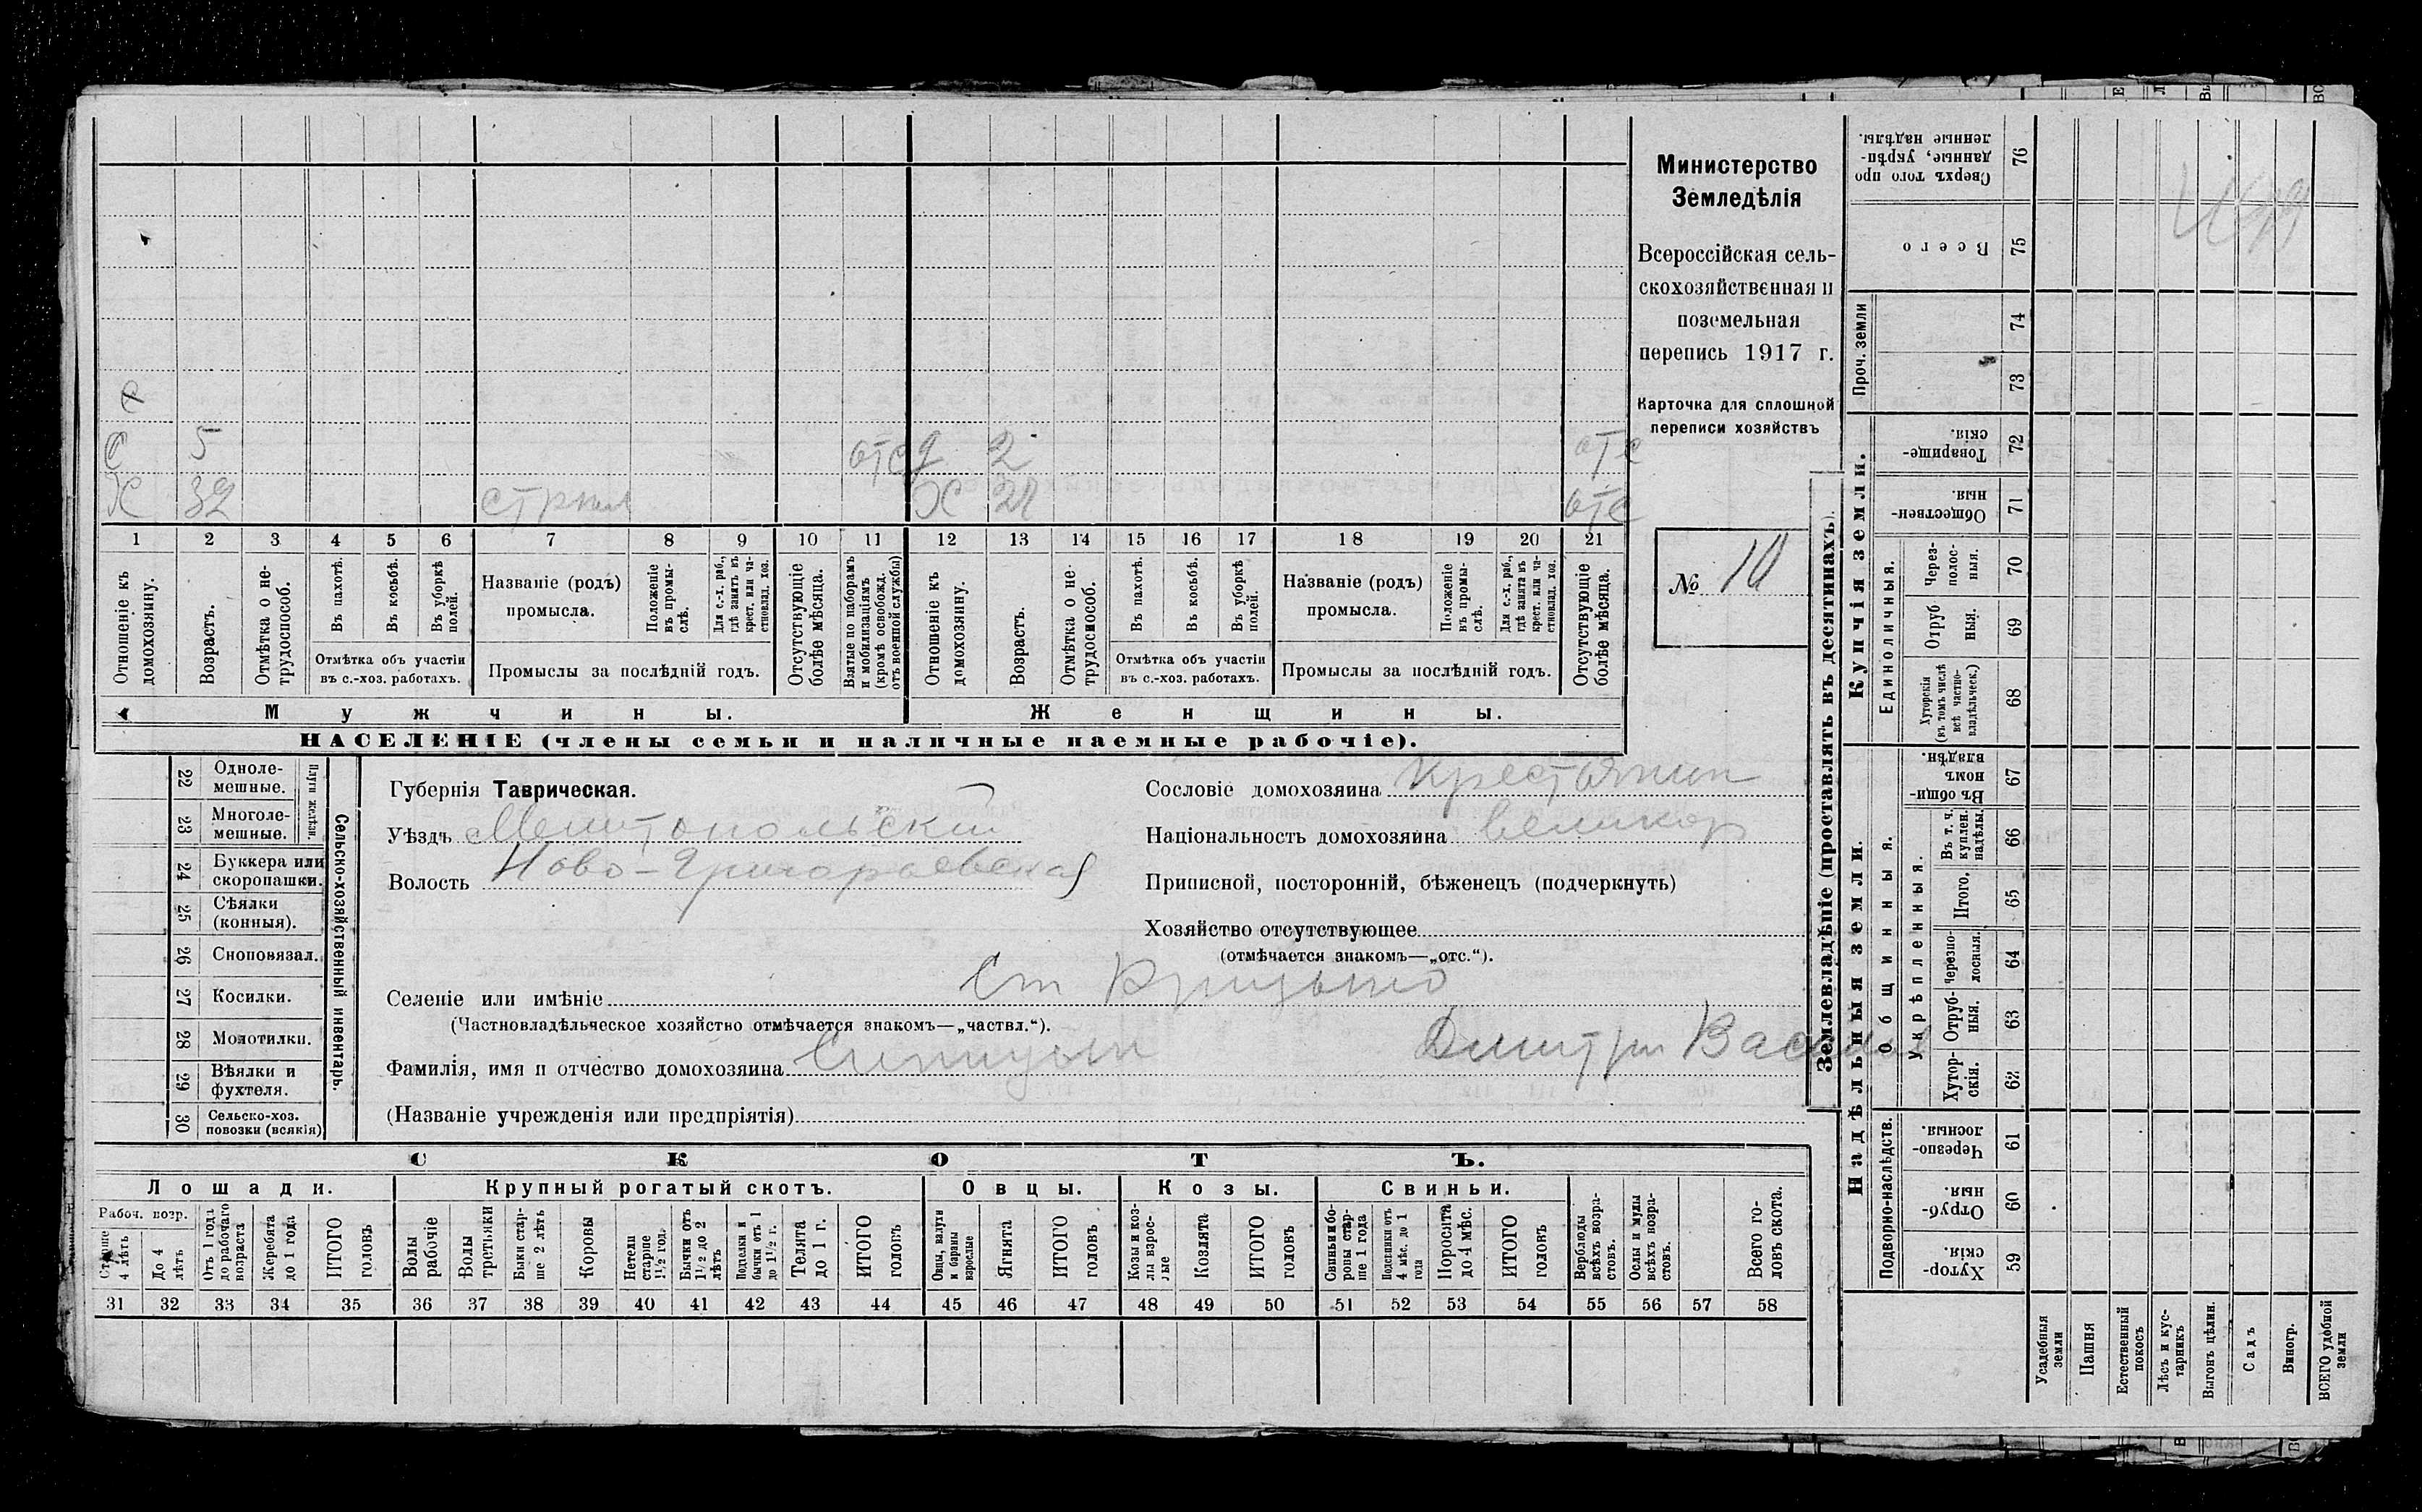 Министерство
Земледѣлія
Всероссійская сель-
скохозяйственная и
поземельная
перепись 1917 г.
Карточка для сплошной
переписи хозяйствъ
№ 10
С 5 отс д 2 отс
Х 32 Х 21 отс
1 2 3 4 5 6 7 8 9 10 11 12 13 14 15 16 17 18 19 20 21
Отношеніе къ домохозяину.
Возрастъ.
Отмѣтка о не-трудоспособ.
Въ пахотѣ.
Въ косьбѣ.
Въ уборкѣ полей.
Отмѣтка объ участіи
въ с.-хоз. работахъ.
Названіе (родъ)
промысла.
Положеніе въ промы-слѣ.
Для с.-х. раб., гдѣ занятъ въ крест. или ча-стновлад. хоз.
Промыслы за послѣдній годъ.
Отсутствующіе болѣе мѣсяца.
Взятые по наборамъ и мобилизаціямъ (кромѣ освобожд. отъ военной службы)
Отношеніе къ домохозяину.
Возрастъ.
Отмѣтка о не-трудоспособ.
Въ пахотѣ.
Въ косьбѣ.
Въ уборкѣ полей.
Отмѣтка объ участіи
въ с.-хоз. работахъ.
Названіе (родъ)
промысла.
Положеніе въ промы-слѣ.
Для с.-х. раб., гдѣ занята въ крест. или ча-стновлад. хоз.
Промыслы за послѣдній годъ.
Отсутствующіе болѣе мѣсяца.
Мужчины.
Женщины.
НАСЕЛЕНІЕ (члены семьи и наличные наемные рабочіе).
22 Одноле-мешные.
23 Многоле-мешные.
Плуги желѣзн.
24 Буккера или скоропашки.
25 Сѣялки (конныя).
26 Сноповязал.
27 Косилки.
28 Молотилки.
29 Вѣялки и фухтеля.
30 Сельско-хоз. повозки (всякія)
Сельско-хозяйственный инвентарь.
Губернія Таврическая.
Уѣздъ Мелитопольскій
Волость Ново-Григорьевская
Сословіе домохозяина крестьянин
Національность домохозяина великор
Приписной, посторонній, бѣженецъ (подчеркнуть)
Хозяйство отсутствующее
(отмѣчается знакомъ—„отс.“).
Селеніе или имѣніе Ст
(Частновладѣльческое хозяйство отмѣчается знакомъ—„частвл.“).
Фамилія, имя и отчество домохозяина Дмитрий
(Названіе учрежденія или предпріятія)
СКОТЪ.
Лошади. Крупный рогатый скотъ. Овцы. Козы. Свиньи.
Рабоч. возр.
Старше 4 лѣтъ
До 4 лѣтъ
Отъ 1 года до рабочаго возраста
Жеребята до 1 года
ИТОГО головъ
Волы рабочіе
Волы третьяки
Быки стар-ше 2 лѣтъ
Коровы
Нетели старше 1½ год.
Бычки отъ 1½ до 2 лѣтъ
Подтелки и бычки отъ 1 до 1½ г.
Телята до 1 г.
ИТОГО головъ
Овцы, валухи и бараны взрослые
Ягнята
ИТОГО головъ
Козы и коз-лы взрос-лые
Козлята
ИТОГО головъ
Свиньи и бо-ровы стар-ше 1 года
Подсвинки отъ 4 мѣс. до 1 года
Поросята до 4 мѣс.
ИТОГО головъ
Верблюды всѣхъ возра-стовъ.
Ослы и мулы всѣхъ возра-стовъ.
Всего го-ловъ скота.
31 32 33 34 35 36 37 38 39 40 41 42 43 44 45 46 47 48 49 50 51 52 53 54 55 56 57 58
Землевладѣніе (проставлять въ десятинахъ).
Надѣльныя земли.
Купчія земли.
Проч. земли
Подворно-наслѣдств.
Общинныя.
Укрѣпленныя.
Единоличныя.
Сверхъ того про-данные, укрѣп-ленные надѣлы. 76
Всего 75
74
73
Товарище-скія. 72
Обществен-ныя. 71
Через-полос-ныя. 70
Отруб-ныя. 69
Хуторскія (въ томъ числѣ всѣ частно-владѣльческ.) 68
Въ общин-номъ владѣн. 67
Въ т. ч. куплен. надѣлы. 66
Итого. 65
Черезпо-лосныя. 64
Отруб-ныя. 63
Хутор-скія. 62
Черезпо-лосныя. 61
Отруб-ныя. 60
Хутор-скія. 59
Усадебныя земли
Пашня
Естественный покосъ
Лѣсъ и кус-тарникъ
Выгонъ цѣлин.
Садъ
Виногр.
ВСЕГО удобной земли